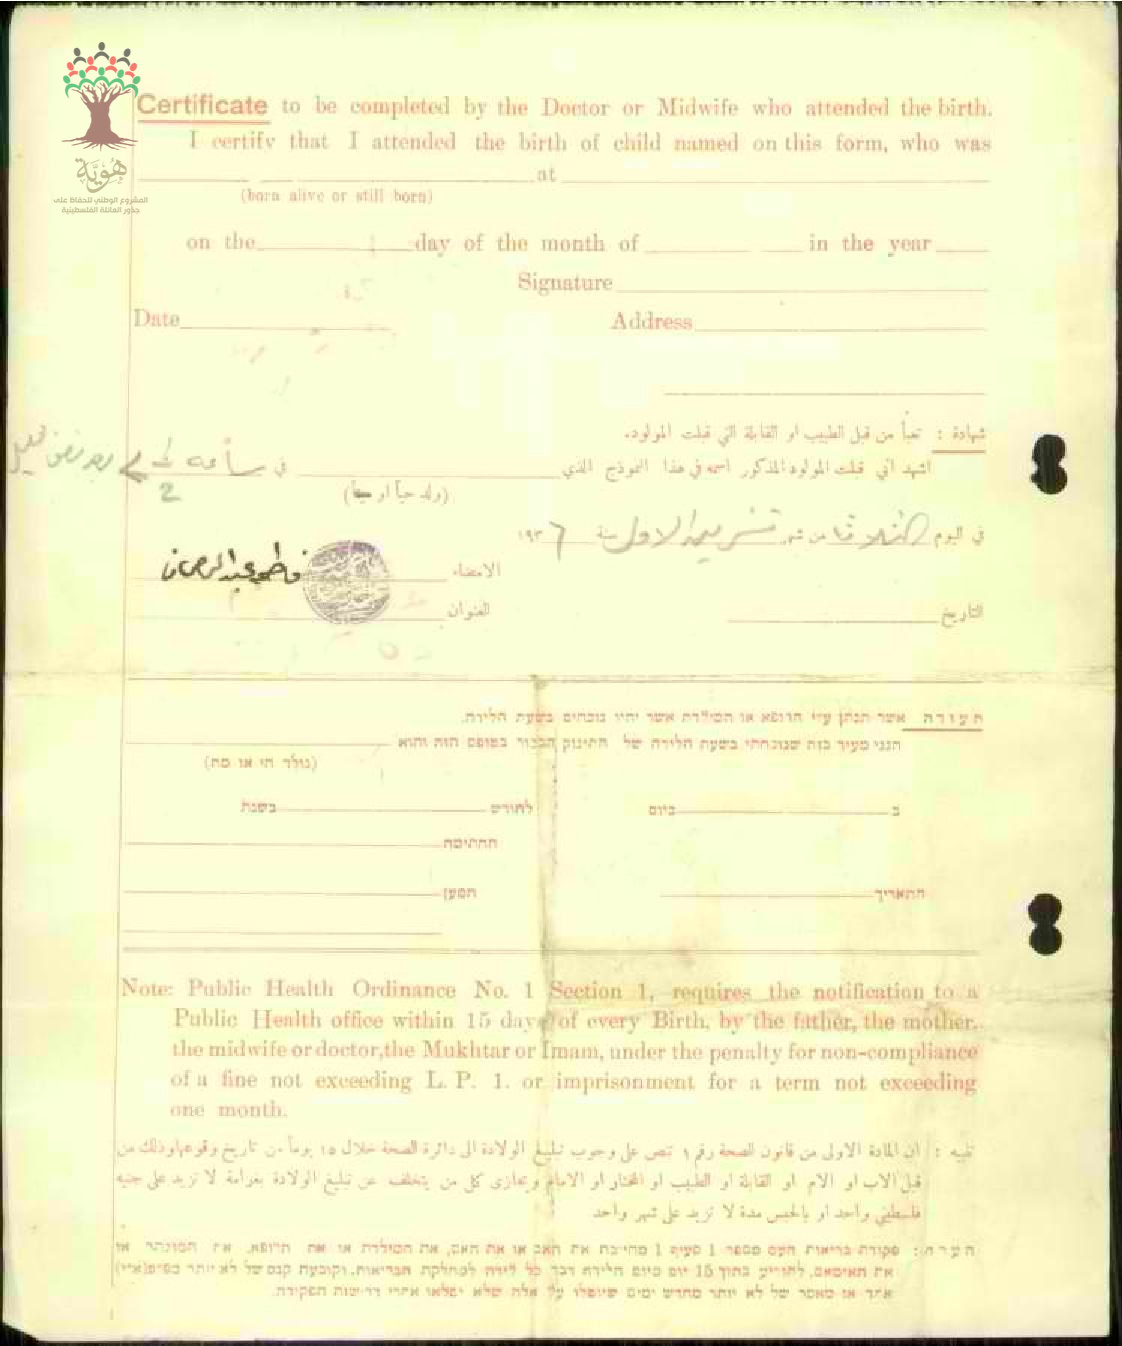 هُويَّة
المشروع الوطني للحفاظ على
جذور العائلة الفلسطينية
Certificate to be completed by the Doctor or Midwife who attended the birth.
I certify that I attended the birth of child named on this form, who was
at
(born alive or still born)
on the day of the month of in the year
Signature
Date Address
شهادة : تعبأ من قبل الطبيب او القابلة التي قبلت المولود.
اشهد اني قبلت المولود المذكور اسمه في هذا النموذج الذي في ساعه
2
(ولد حياً او ميتاً)
في اليوم الثلاثا من شهر تشرين الاول سنة ١٩٣٦
الامضاء فاطمه عبد الرحمان
التاريخ العنوان
תעודה אשר תנתן ע״י הרופא או המילדת אשר יהיו נוכחים בשעת הלידה.
הנני מעיד בזה שנוכחתי בשעת הלידה של התינוק הנזכר בטופס הזה והוא
(נולד חי או מת)
ב ביום לחודש בשנת
החתימה
התאריך המען
Note: Public Health Ordinance No. 1 Section 1, requires the notification to a
Public Health office within 15 days of every Birth, by the father, the mother,
the midwife or doctor, the Mukhtar or Imam, under the penalty for non-compliance
of a fine not exceeding L. P. 1. or imprisonment for a term not exceeding
one month.
تنبيه : ان المادة الاولى من قانون الصحة رقم ١ تنص على وجوب تبليغ الولادة الى دائرة الصحة خلال ١٥ يوماً من تاريخ وقوعها وذلك من
قبل الاب او الام او القابلة او الطبيب او المختار او الامام ويجازى كل من يتخلف عن تبليغ الولادة بغرامة لا تزيد على جنيه
فلسطيني واحد او بالحبس مدة لا تزيد على شهر واحد
הערה: פקודת בריאות העם מספר 1 סעיף 1 מחייבת את האב או את האם, את המילדת או את הרופא, את המוכתר או
את האימאם, להודיע בתוך 15 יום מיום הלידה דבר כל לידה למחלקת הבריאות, וקובעת קנס של לא יותר מ
אחד או מאסר של לא יותר מחדש ימים שיוטלו על אלה שלא ימלאו אחרי דרישות הפקודה.